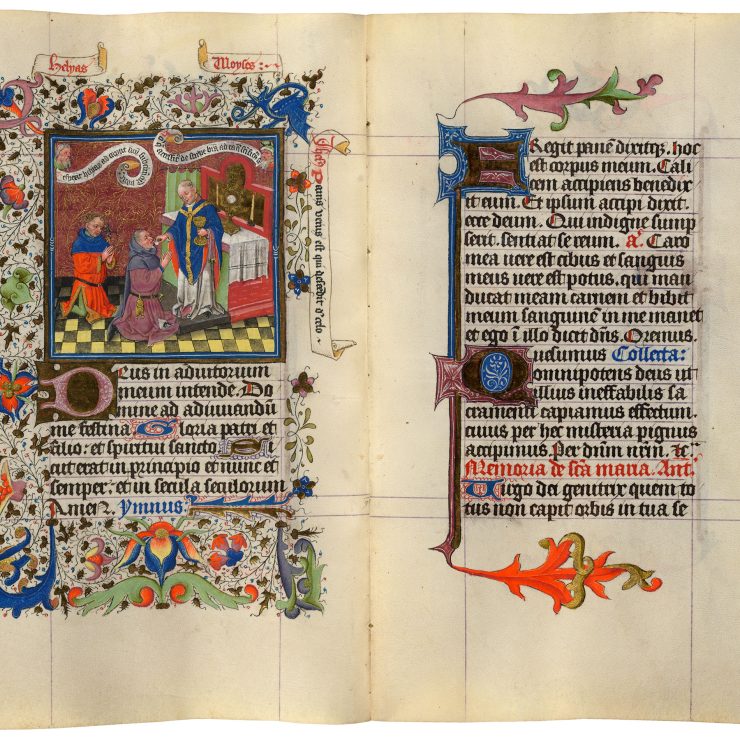 Helyas
Moyses:
Panis verus est qui descēdit d' celo
Deus in adiutorium
meum intende. Do
mine ad adiuuandū
me festina Gloria patri et
filio: et spiritui sancto S
icut erat in principio et nunc et
semper: et in secula seculorum
Amen. ymnus:
Fregit panē dixitqꝫ. hoc
est corpus meum. Cali
cem accipiens benedix
it eum. Et ipsum accipi dixit.
ecce deum. Qui indigne sump
serit. sentiat se reum. a. Caro
mea vere est cibus et sanguis
meus vere est potus. qui man
ducat meam carnem et bibit
meum sanguinem in me manet
et ego ī illo dicit dn̄s. Oremus.
Quesumus Collecta:
omnipotens deus ut
illius ineffabilis sa
cramenti capiamus effectum.
cuius per hec misteria pignus
accipimus. Per dn̄m nr̄m. ꝛc.
Memoria de scā maria. Ant.
Virgo dei genitrix quem to
tus non capit orbis in tua se